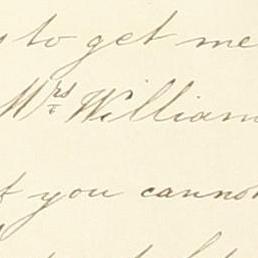 to get me
Mrs William
if you cannot